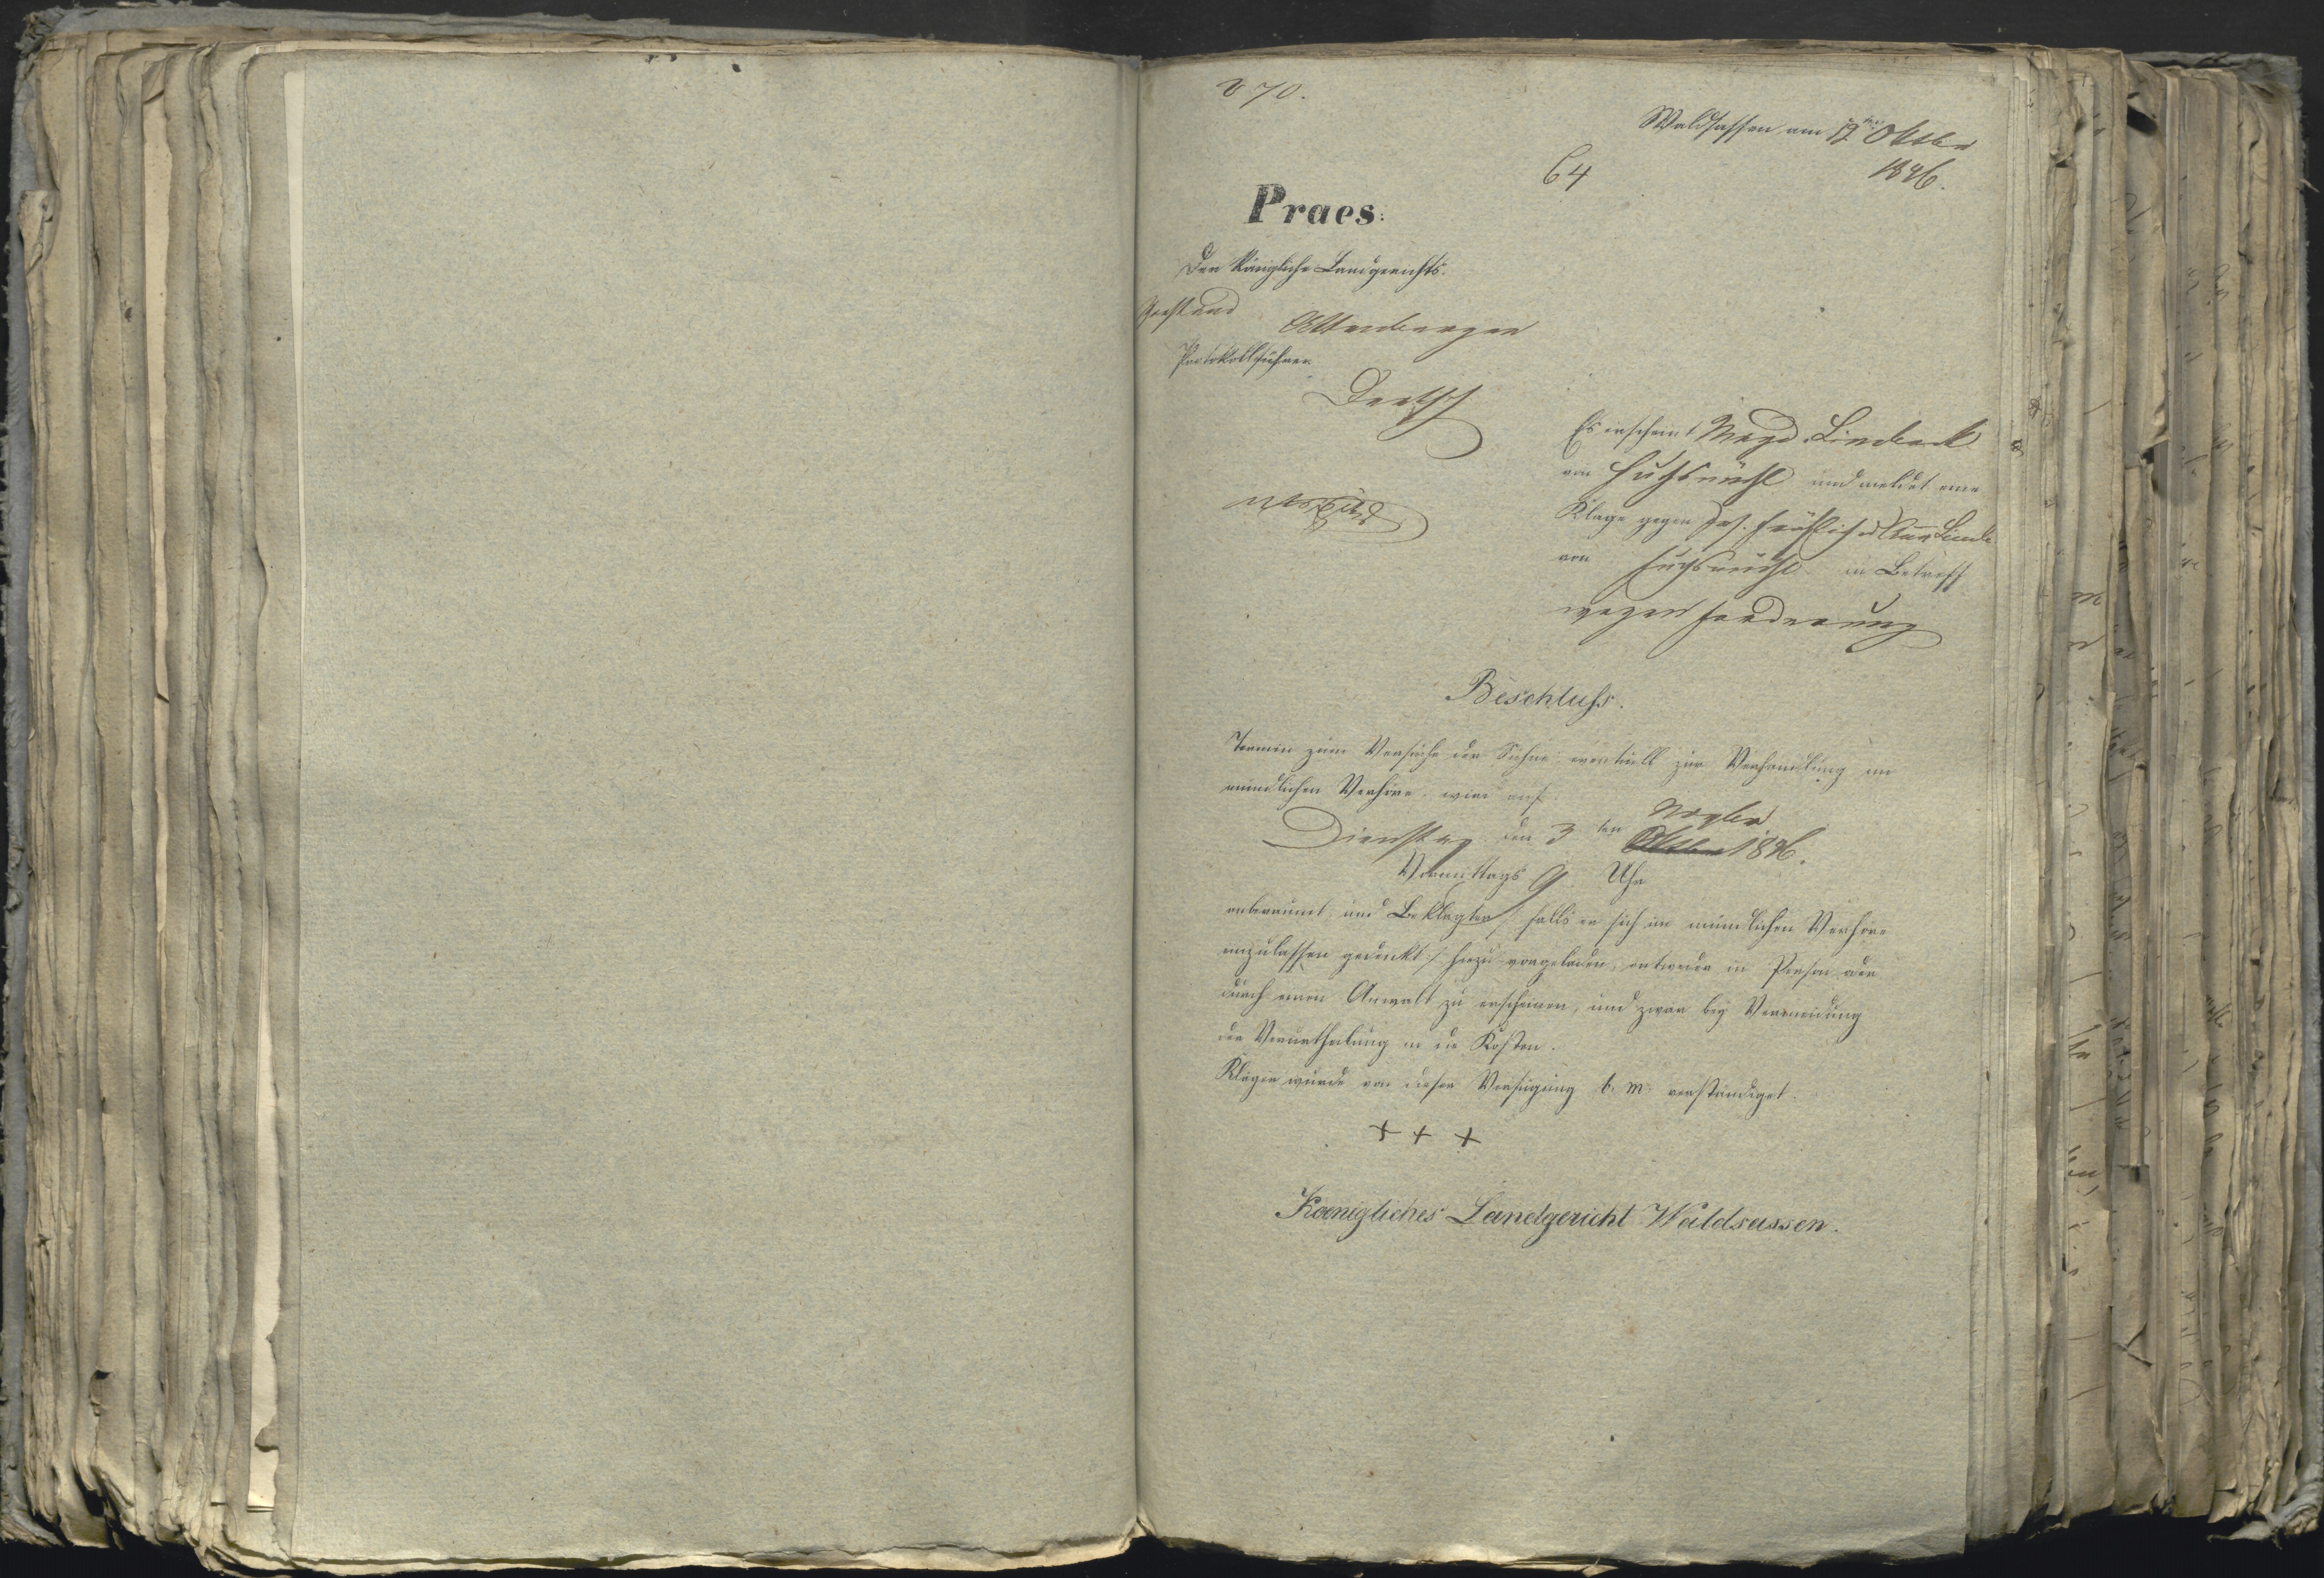 870.
Waldsassen am 12ten Oktber
1846.
64
Praes:
Der Königliche Landgerichts-
Vorstand
Protokollführer
Es erscheint Magd. Lindauck
von Fuchsmühl und meldet eine
Klage gegen Jos. Fröhlich
von Fuchsmühl in Betreff
wegen Forderung
Beschluſs.
Termin zum Versuche der Sühne eventuell zur Verhandlung im
mündlichen Verhöre wird auf
Novber
Dienstag den 3 ten Oktber 1846.
Vormittags 9 Uhr
anberaumt, und Beklagter /: falls er sich im mündlichen Verhöre
einzulassen gedenkt :/ hiezu vorgeladen, entweder in Person oder
durch einen Anwalt zu erscheinen, und zwar bey Vermeidung
der Verurtheilung in die Kosten.
Klägerin wurde von dieser Verfügung b. m. verständiget.
+ + +
Koenigliches Landgericht Waldsassen.